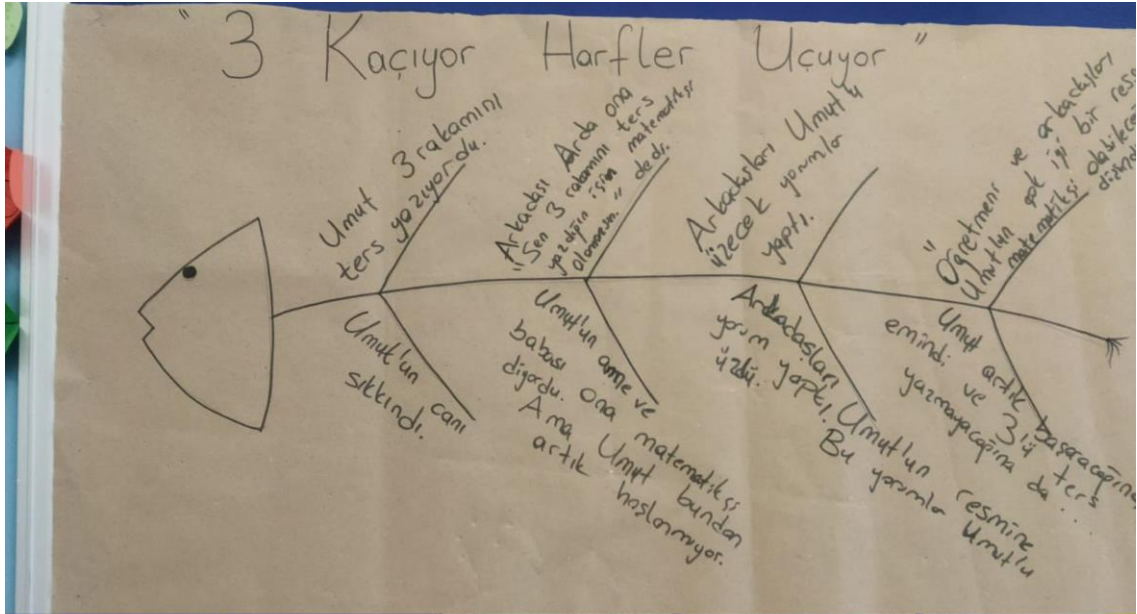 "3 Kaçıyor Harfler Uçuyor"
Umut 3 rakamını
ters yazıyordu.
Arkadaşı Arda ona
"Sen 3 rakamını ters
yazdığın için matematikçi
olamazsın." dedi.
Arkadaşları Umut'u
üzecek yorumlar
yaptı.
"Öğretmeni ve arkadaşları
Umut'un çok iyi bir
matematikçi
Umut'un canı
sıkkındı.
Umut'un anne ve
babası ona matematikçi
diyordu.
Ama Umut bundan
artık hoşlanmıyor.
Arkadaşları Umut'un resmine
yorum yaptı. Bu yorumlar Umut'u
üzdü.
Umut artık başaracağına
emindi ve 3'ü ters
yazmayacağına da..